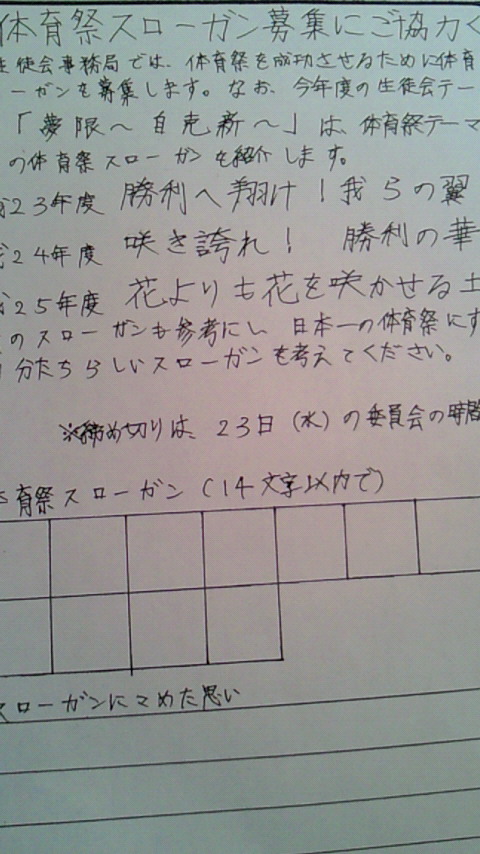 体育祭スローガン募集にご協力く
生徒会事務局では、体育祭を成功させるために体育
ーガンを募集します。なお、今年度の生徒会テー
「夢限～自克新～」は、体育祭テーマ
の体育祭スローガンを紹介します。
成23年度 勝利へ翔け！我らの翼
成24年度 咲き誇れ！ 勝利の華
成25年度 花よりも花を咲かせる土
のスローガンも参考にし、日本一の体育祭にす
分たちらしいスローガンを考えてください。
※締め切りは、23日（水）の委員会の時間
体育祭スローガン（14文字以内で）
スローガンにこめた思い